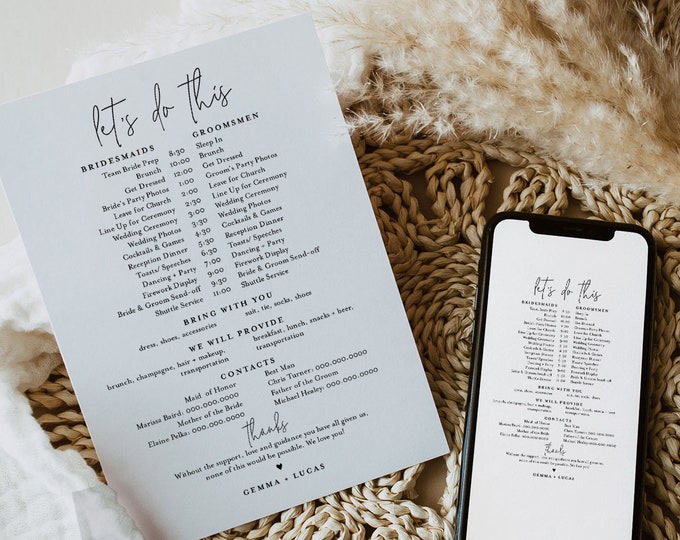 let's do this
BRIDESMAIDS GROOMSMEN
Team Bride Prep 8:30 Sleep In
Brunch 10:00 Brunch
Get Dressed 12:00 Get Dressed
Bride's Party Photos 1:00 Groom's Party Photos
Leave for Church 2:00 Leave for Church
Line Up for Ceremony 2:30 Line Up for Ceremony
Wedding Ceremony 3:00 Wedding Ceremony
Wedding Photos Wedding Photos
Cocktails & Games Cocktails & Games
Reception Dinner 5:30 Reception Dinner
Toasts/ Speeches 6:30 Toasts/ Speeches
Dancing + Party Dancing + Party
Firework Display 9:00 Firework Display
Bride & Groom Send-off 9:30 Bride & Groom Send-off
Shuttle Service 11:00 Shuttle Service
BRING WITH YOU
dress, shoes, accessories suit, tie, socks, shoes
WE WILL PROVIDE
brunch, champagne, hair + makeup, breakfast, lunch, snacks + beer,
transportation transportation
CONTACTS
Maid of Honor Best Man
Marissa Baird: 000.000.0000 Chris Turner: 000.000.0000
Mother of the Bride Father of the Groom
Elaine Pelka: 000.000.0000 Michael Healey: 000.000.0000
thanks
Without the support, love and guidance you have all given us,
none of this would be possible. We love you!
GEMMA + LUCAS
let's do this
BRIDESMAIDS GROOMSMEN
BRING WITH YOU
WE WILL PROVIDE
CONTACTS
thanks
GEMMA + LUCAS